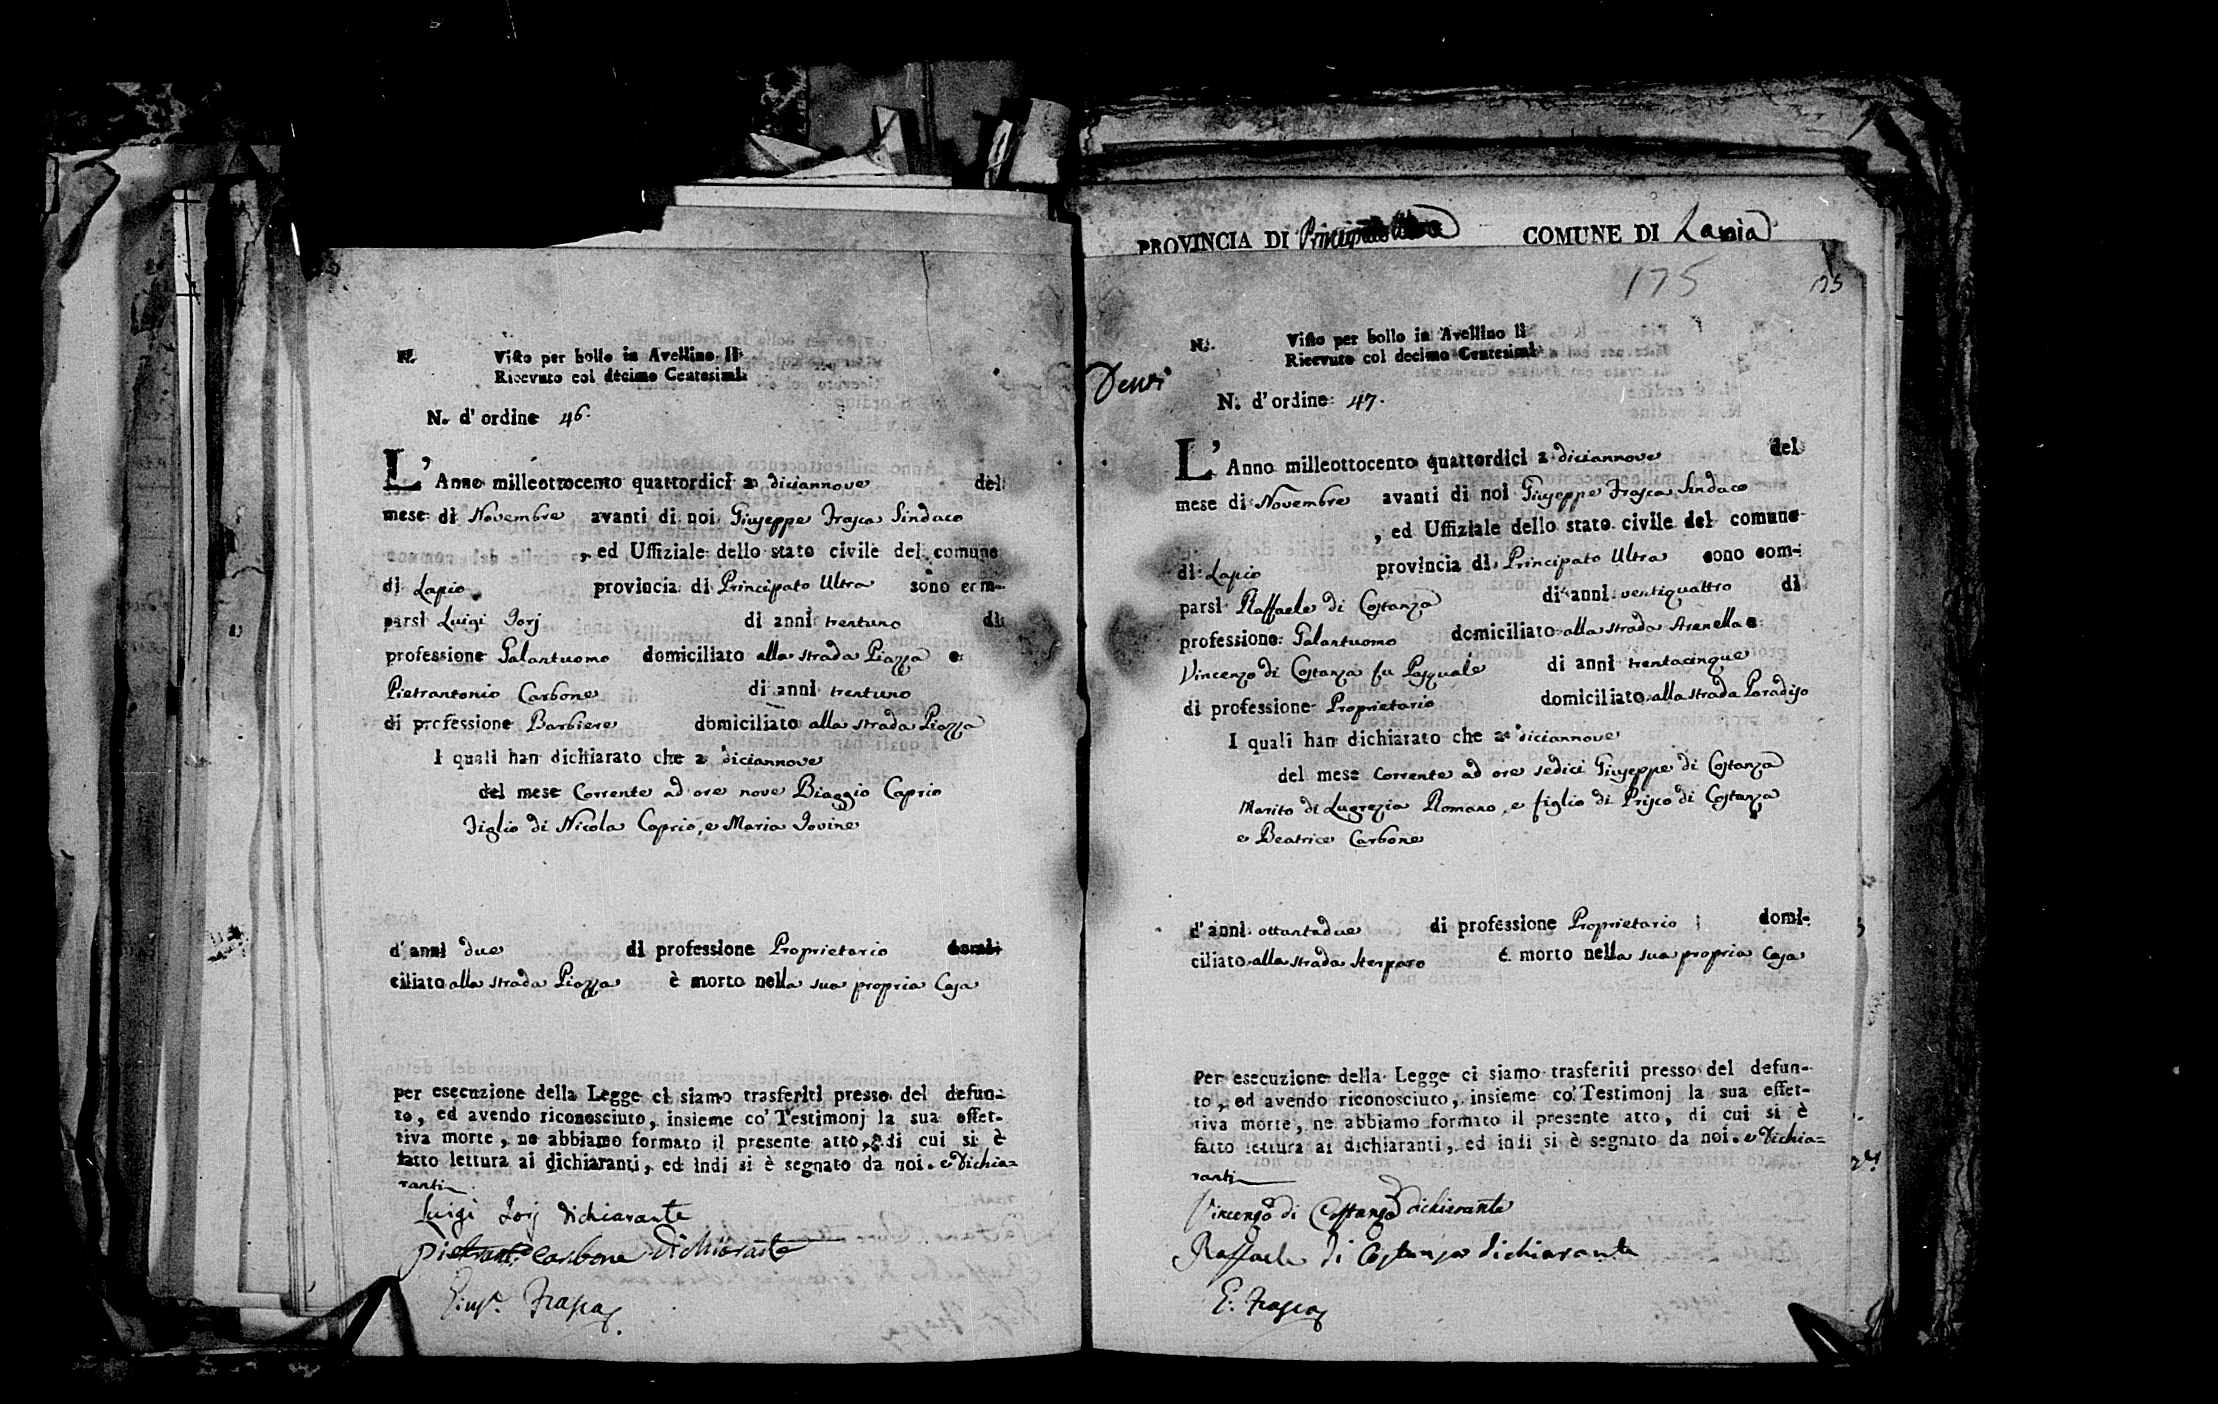 N.
Visto per bollo in Avellino li
Ricevuto col decimo Centesimi
N. d' ordine 46.
L' Anno milleottocento quattordici a diciannove del
mese di Novembre avanti di noi Giuseppe Frasca Sindaco
, ed Uffiziale dello stato civile del comune
di Lapio provincia di Principato Ultra sono com-
parsi Luigi Jorj di anni trentuno di
professione Galantuomo domiciliato alla strada Piazza e
Pietrantonio Carbone di anni trentuno
di professione Barbiere domiciliato alla strada Piazza
I quali han dichiarato che a diciannove
del mese Corrente ad ore nove Biaggio Caprio
Figlio di Nicola Caprio, e Maria Jovine
d' anni due di professione Proprietario domi-
ciliato alla strada Piazza è morto nella sua propria Casa
per esecuzione della Legge ci siamo trasferiti presso del defun-
to, ed avendo riconosciuto, insieme co' Testimonj la sua effet-
tiva morte, ne abbiamo formato il presente atto, di cui si è
fatto lettura ai dichiaranti, ed indi si è segnato da noi. e Dichia=
ranti
Luigi Jorj dichiarante
Pietrant.o carbone dichiarante
Gius.e Frasca
PROVINCIA DI Principato Ultra COMUNE DI Lapio
175
175
N.
Visto per bollo in Avellino li
Ricevuto col decimo Centesimi
N. d' ordine 47.
L' Anno milleottocento quattordici a diciannove del
mese di Novembre avanti di noi Giuseppe Frasca Sindaco
, ed Uffiziale dello stato civile del comune
di Lapio provincia di Principato Ultra sono com-
parsi Raffaele di Costanza di anni ventiquattro di
professione Galantuomo domiciliato alla strada Arenella e
Vincenzo di Costanza fu Pasquale di anni trentacinque
di professione Proprietario domiciliato alla strada Paradiso
I quali han dichiarato che a diciannove
del mese Corrente ad ore sedici Giuseppe di Costanza
Marito di Lugrezia Romano, e figlio di Prisco di Costanza
e Beatrice Carbone
d' anni ottantadue di professione Proprietario domi-
ciliato alla strada Sterparo è morto nella sua propria Casa
Per esecuzione della Legge ci siamo trasferiti presso del defun-
to, ed avendo riconosciuto, insieme co' Testimonj la sua effet-
tiva morte, ne abbiamo formato il presente atto, di cui si è
fatto lettura ai dichiaranti, ed indi si è segnato da noi. e Dichia=
ranti
Vincenzo di Costanza dichiarante
Raffaele di Costanza dichiarante
G. Frasca